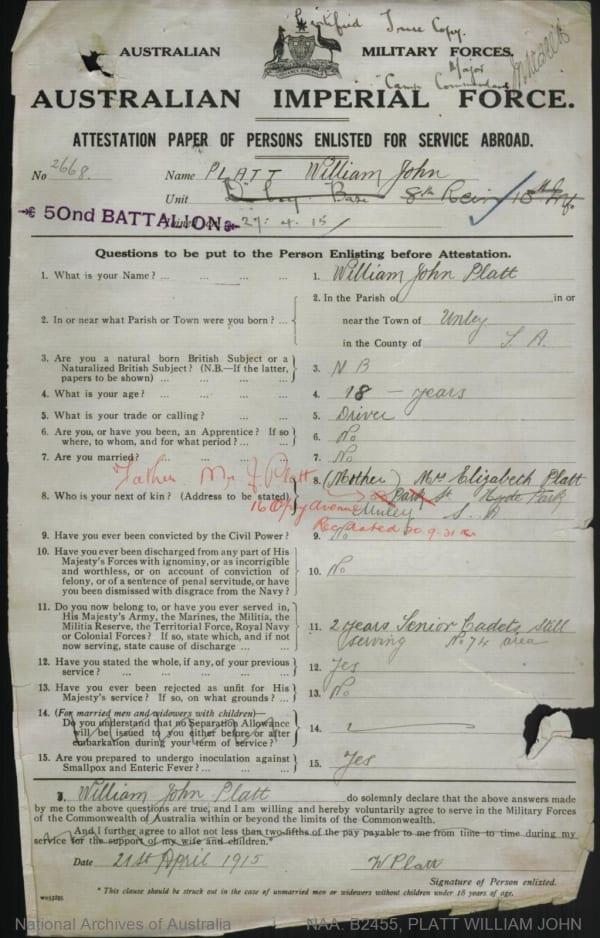 Certified True Copy.
AUSTRALIAN MILITARY FORCES.
Major
Camp Commandant
AUSTRALIAN IMPERIAL FORCE.
ATTESTATION PAPER OF PERSONS ENLISTED FOR SERVICE ABROAD.
No 2668. Name PLATT William John
Unit D Coy. Base 8th Rein 10th
50nd BATTALION 27. 4. 15
Questions to be put to the Person Enlisting before Attestation.
1. What is your Name? ... 1. William John Platt
2. In or near what Parish or Town were you born? ... 2. In the Parish of in or
near the Town of Unley
in the County of S A.
3. Are you a natural born British Subject or a
Naturalized British Subject? (N.B.—If the latter,
papers to be shown) ... 3. N B
4. What is your age? ... 4. 18 – years
5. What is your trade or calling? ... 5. Driver
6. Are you, or have you been, an Apprentice? If so
where, to whom, and for what period? ... 6. No
7. Are you married? ... 7. No
Father Mr J. Platt
8. Who is your next of kin? (Address to be stated) 8. (Mother) Mrs Elizabeth Platt
Park St Hyde Park
16 Opey Avenue Unley S. A
9. Have you ever been convicted by the Civil Power? 9. No
10. Have you ever been discharged from any part of His
Majesty's Forces with ignominy, or as incorrigible
and worthless, or on account of conviction of
felony, or of a sentence of penal servitude, or have
you been dismissed with disgrace from the Navy? 10. No
11. Do you now belong to, or have you ever served in,
His Majesty's Army, the Marines, the Militia, the
Militia Reserve, the Territorial Force, Royal Navy
or Colonial Forces? If so, state which, and if not
now serving, state cause of discharge ... 11. 2 years Senior Cadets still
serving No 74 area
12. Have you stated the whole, if any, of your previous
service? ... 12. Yes
13. Have you ever been rejected as unfit for His
Majesty's service? If so, on what grounds? ... 13. No
14. (For married men and widowers with children)—
Do you understand that no Separation Allowance
will be issued to you either before or after
embarkation during your term of service? 14.
15. Are you prepared to undergo inoculation against
Smallpox and Enteric Fever? ... 15. Yes
I, William John Platt do solemnly declare that the above answers made
by me to the above questions are true, and I am willing and hereby voluntarily agree to serve in the Military Forces
of the Commonwealth of Australia within or beyond the limits of the Commonwealth.
And I further agree to allot not less than two-fifths of the pay payable to me from time to time during my
service for the support of my wife and children.*
Date 21st April 1915 W Platt
Signature of Person enlisted.
* This clause should be struck out in the case of unmarried men or widowers without children under 18 years of age.
National Archives of Australia NAA: B2455, PLATT WILLIAM JOHN